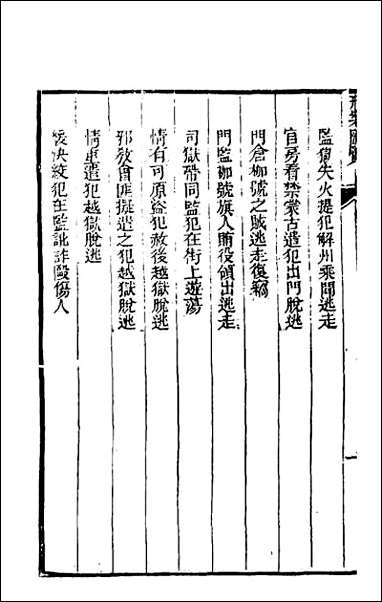 刑案匯覽
監獄失火提犯解州乘間逃走
官房看禁蒙古遣犯出門脫逃
門倉枷號之賊逃走復竊
門監枷號旗人賄役領出逃走
司獄帶同監犯在街上遊蕩
情有可原盜犯赦後越獄脫逃
邪教會匪擬遣之犯越獄脫逃
情重遣犯越獄脫逃
緩決絞犯在監訛詐毆傷人